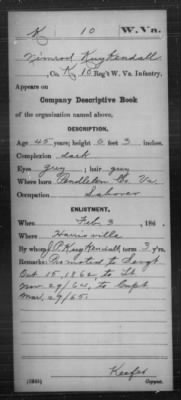 K 10 W. Va.
Nimrod Kuykendall
, Co. K, 10 Reg't W. Va. Infantry.
Appears on
Company Descriptive Book
of the organization named above.
DESCRIPTION.
Age 45 years; height 6 feet 3 inches.
Complexion dark
Eyes grey; hair grey
Where born Pendleton Co Va.
Occupation Laborer
ENLISTMENT.
When Feb 3, 186 .
Where Harrisville
By whom J P Kuykendall; term 3 y'rs.
Remarks: Promoted to Sergt
Oct 15, 1862, to Lt
Nov. 29/64, to Capt
Mar. 29/65.
Keefer
Copyist.